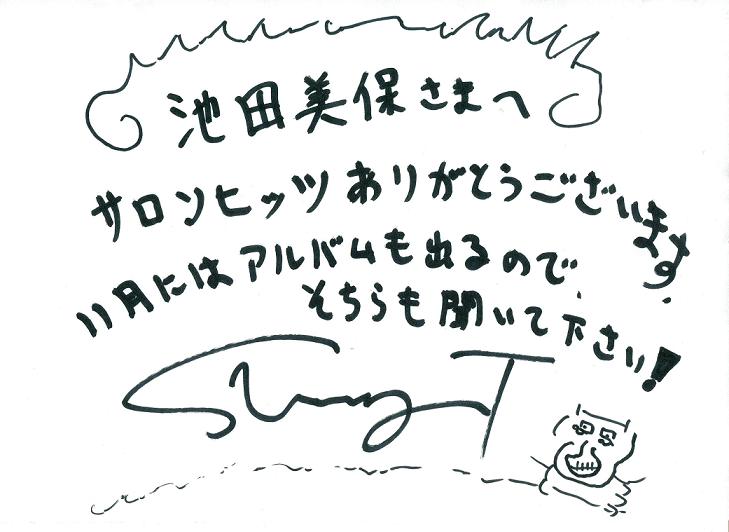 池田美保さまへ
サロンヒッツありがとうございます。
11月にはアルバムも出るので、
そちらも聞いて下さい!